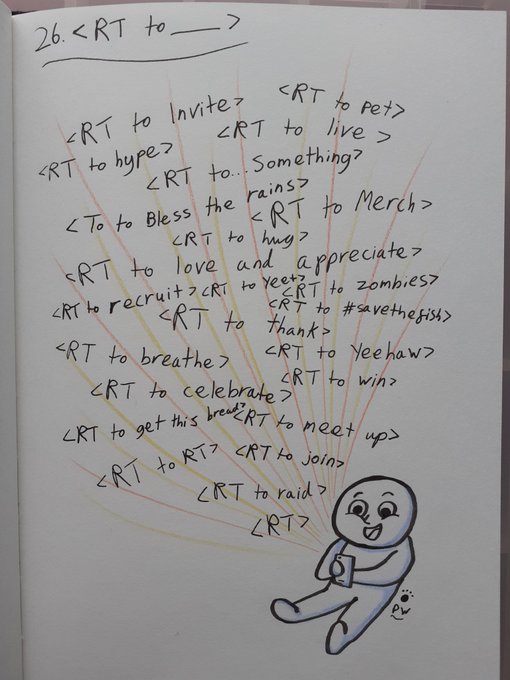 26. <RT to ___>
<RT to Invite> <RT to pet>
<RT to hype> <RT to live>
<RT to...Something>
<To to Bless the rains>
<RT to Merch>
<RT to hug>
<RT to love and appreciate>
<RT to recruit> <RT to Yeet> <RT to zombies>
<RT to thank> <RT to #savethefish>
<RT to breathe> <RT to Yeehaw>
<RT to celebrate> <RT to win>
<RT to get this bread> <RT to meet up>
<RT to RT> <RT to join>
<RT to raid>
<RT>
PW